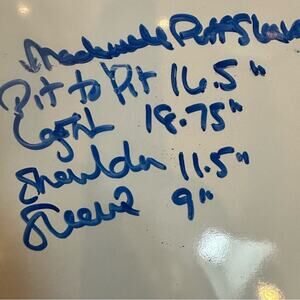 Madewell Puff Sleeve
Pit to Pit 16.5"
Length 18.75"
Shoulder 11.5"
Sleeve 9"